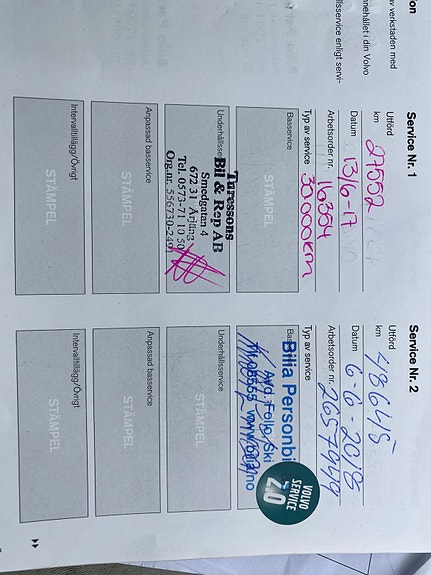 on
av verkstaden med
anehållet i din Volvo
lsservice enligt servi-
Service Nr. 1
Utförd
km 27552
Datum 13/6-17
Arbetsorder nr. 116354
Typ av service 30.000km
Basservice
STÄMPEL
Underhållsse
Thuressons
Bil & Rep AB
Smedgatan 4
672 31 Årjäng
Tel. 0573-71 10 50
Org.nr. 556730-2491
Anpassad basservice
STÄMPEL
Intervalltillägg/Övrigt
STÄMPEL
Service Nr. 2
Utförd
km 48645
Datum 6-6-2018
Arbetsorder nr. 2657949
Typ av service
Bas
Bilia Personbi
Avd Follo/Ski
www.bilia.no
VOLVO
SERVICE
2.0
Underhållsservice
STÄMPEL
Anpassad basservice
STÄMPEL
Intervalltillägg/Övrigt
STÄMPEL